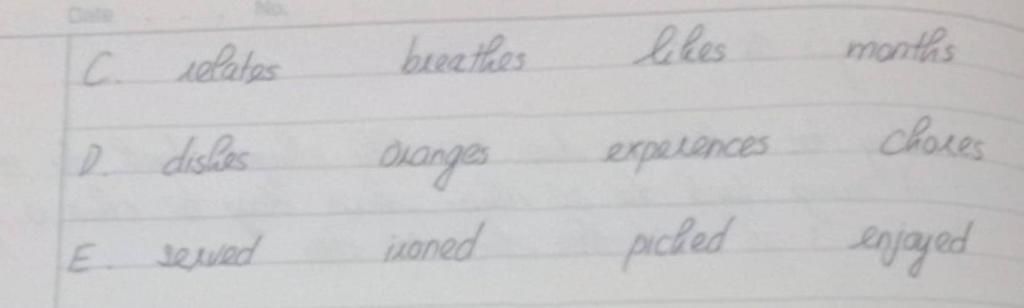 Date No.
C. relates breathes likes months
D. dishes oranges experences chores
E. served ironed picked enjoyed